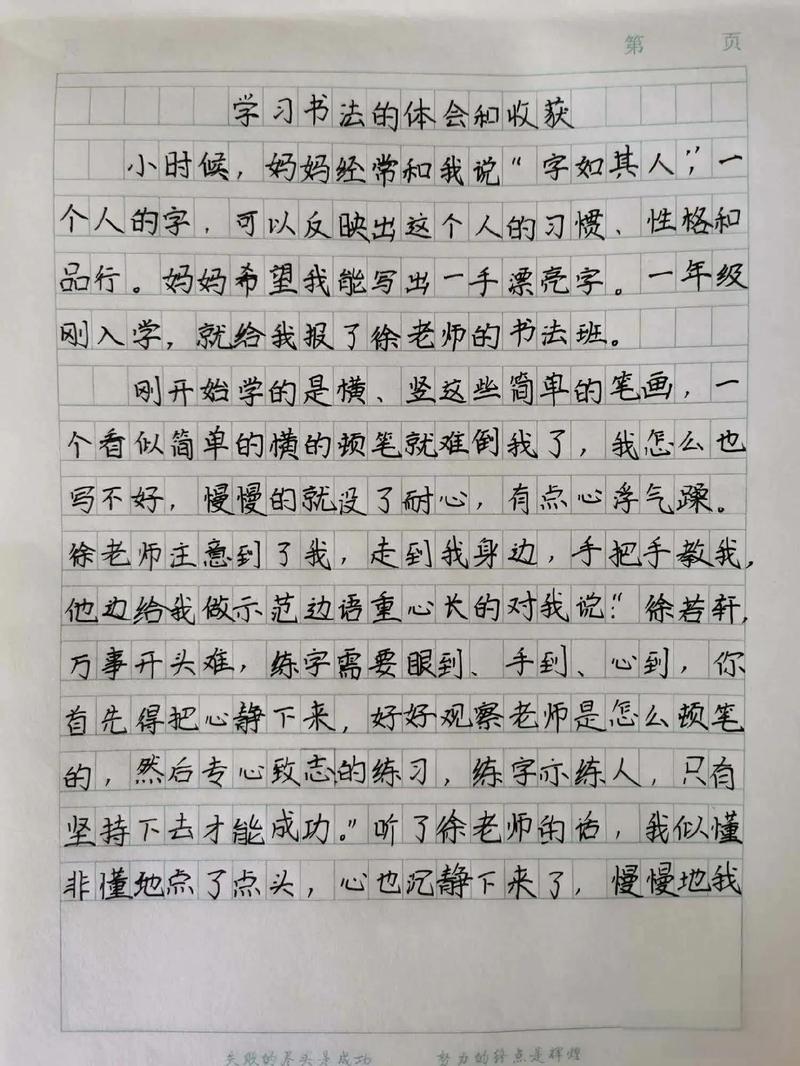 第 页
学习书法的体会和收获
小时候，妈妈经常和我说“字如其人”，一
个人的字，可以反映出这个人的习惯、性格和
品行。妈妈希望我能写出一手漂亮字。一年级
刚入学，就给我报了徐老师的书法班。
刚开始学的是横、竖这些简单的笔画，一
个看似简单的横的顿笔就难倒我了，我怎么也
写不好，慢慢的就没了耐心，有点心浮气躁。
徐老师注意到了我，走到我身边，手把手教我，
他边给我做示范边语重心长的对我说：“徐若轩，
万事开头难，练字需要眼到、手到、心到，你
首先得把心静下来，好好观察老师是怎么顿笔
的，然后专心致志的练习，练字亦练人，只有
坚持下去才能成功。”听了徐老师的话，我似懂
非懂地点了点头，心也沉静下来了，慢慢地我
失败的尽头是成功 努力的终点是辉煌